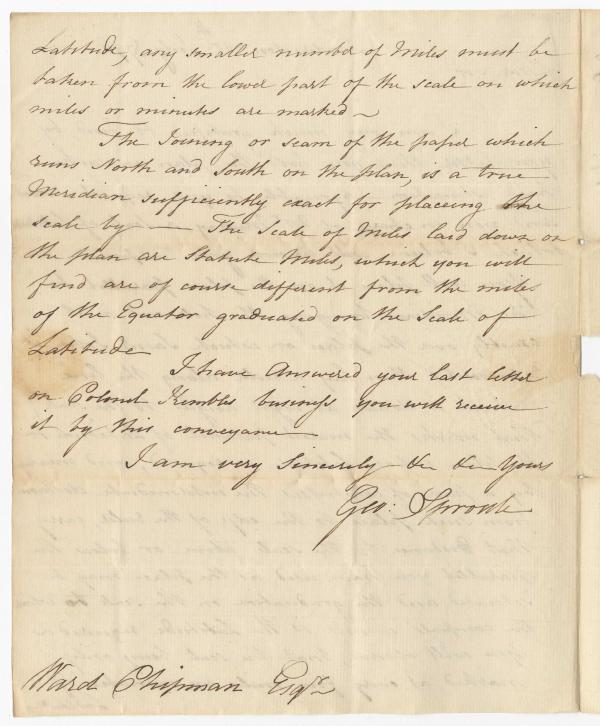 Latitude, any smaller number of Miles must be
taken from the lower part of the scale on which
miles or minutes are marked ~
The Joining or seam of the paper which
runs North and South on the plan, is a true
Meridian sufficiently exact for placeing the
scale by — The Scale of Miles laid down on
the plan are Statute Miles, which you will
find are of course different from the miles
of the Equator graduated on the Scale of
Latitude
I have Answered your last letter
on Colonel Kembles business you will receive
it by this conveyance
I am very Sincerely &c &c Yours
Geo: Sproule
Ward Chipman Esqr.